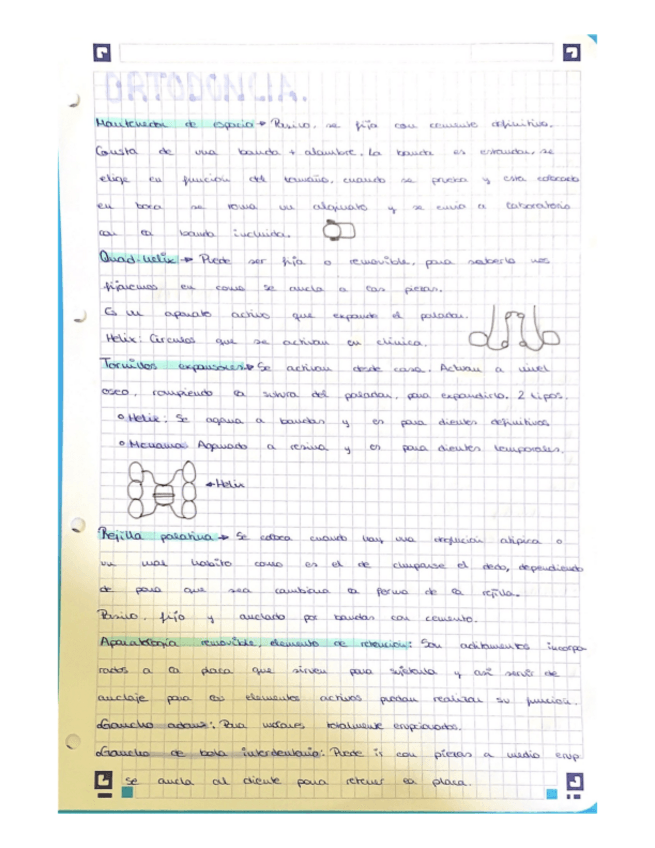 ORTODONCIA.
Mantenedor de espacio → Pasivo, se fija con cemento definitivo.
Consta de una banda + alambre. La banda es estandar, se
elige en función del tamaño, cuando se prueba y esta colocada
en boca se toma un alginato y se envia a laboratorio
con la banda incluida.
Quad-helix → Puede ser fija o removible, para saberlo nos
fijaremos en como se ancla a las piezas.
Es un aparato activo que expande el paladar.
Helix: Circulos que se activan en clinica.
Tornillos expansores → Se activan desde casa. Actuan a nivel
oseo, rompiendo la sutura del paladar, para expandirlo. 2 tipos.
o Helix: Se agarra a bandas y es para dientes definitivos
o Mcnamara Agarrado a resina y es para dientes temporales.
← Helix
Rejilla palatina → Se coloca cuando hay una deglución atipica o
un mal habito como es el de chuparse el dedo, dependiendo
de para que sea cambiara la forma de la rejilla.
Pasivo, fijo y anclado por bandas con cemento.
Aparatología removible, elemento de retencion: Son aditamentos incorpo-
rados a la placa que sirven para sujetarla y asi servir de
anclaje para los elementos activos puedan realizar su funcion.
Gancho adams: Para molares totalmente erupcionados.
Gancho de bola interdentario: Puede ir con piezas a medio erup.
se ancla al diente para retener la placa.